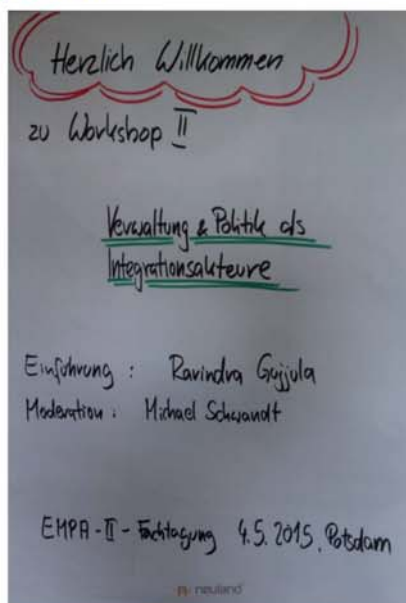 Herzlich Willkommen
zu Workshop II
Verwaltung & Politik als
Integrationsakteure
Einführung : Ravindra Gujjula
Moderation : Michael Schwandt
EMPA-II-Fachtagung 4.5.2015, Potsdam
neuland